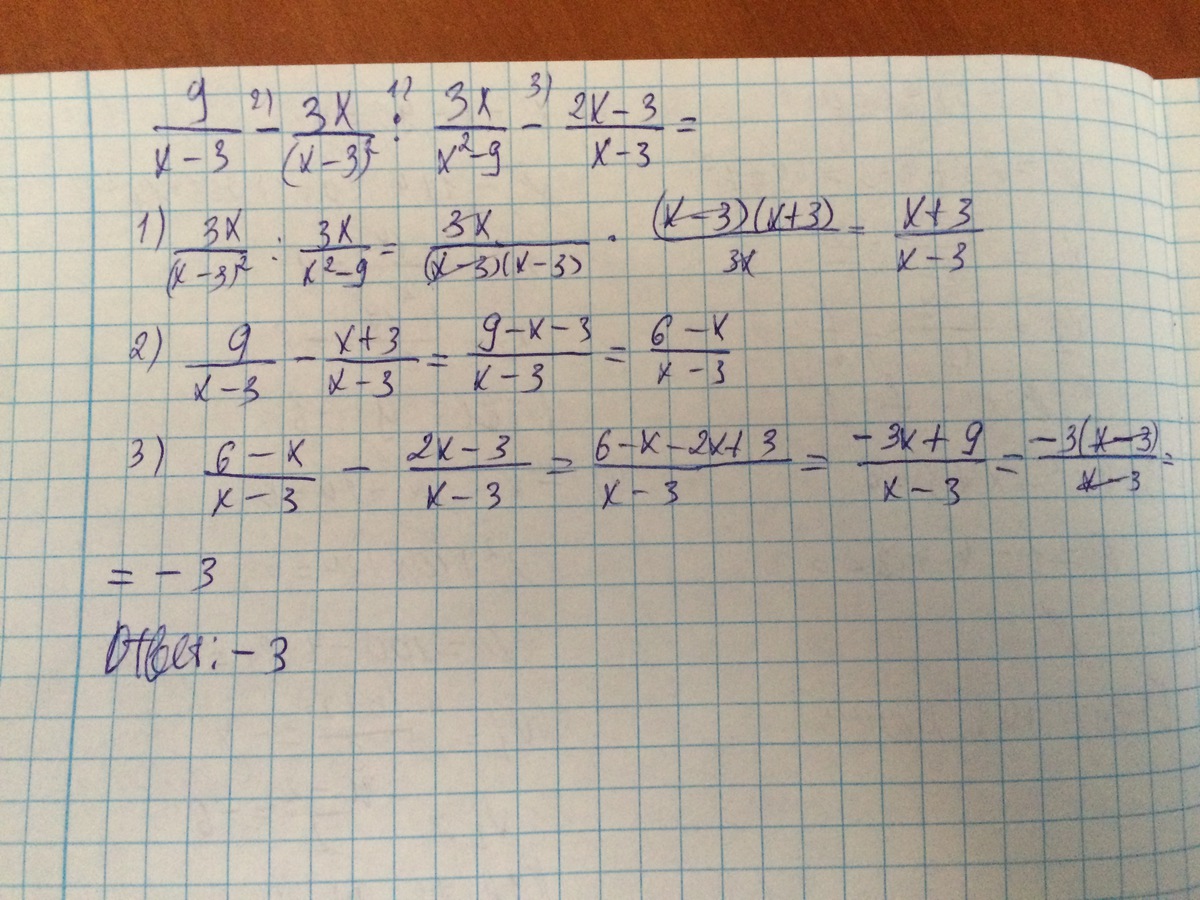 9/(x-3) 2) - 3x/(x-3)² 1) : 3x/(x²-9) 3) - (2x-3)/(x-3) =
1) 3x/(x-3)² : 3x/(x²-9) = 3x/((x-3)(x-3)) · ((x-3)(x+3))/3x = (x+3)/(x-3)
2) 9/(x-3) - (x+3)/(x-3) = (9-x-3)/(x-3) = (6-x)/(x-3)
3) (6-x)/(x-3) - (2x-3)/(x-3) = (6-x-2x+3)/(x-3) = (-3x+9)/(x-3) = (-3(x-3))/(x-3) =
= -3
Ответ: -3